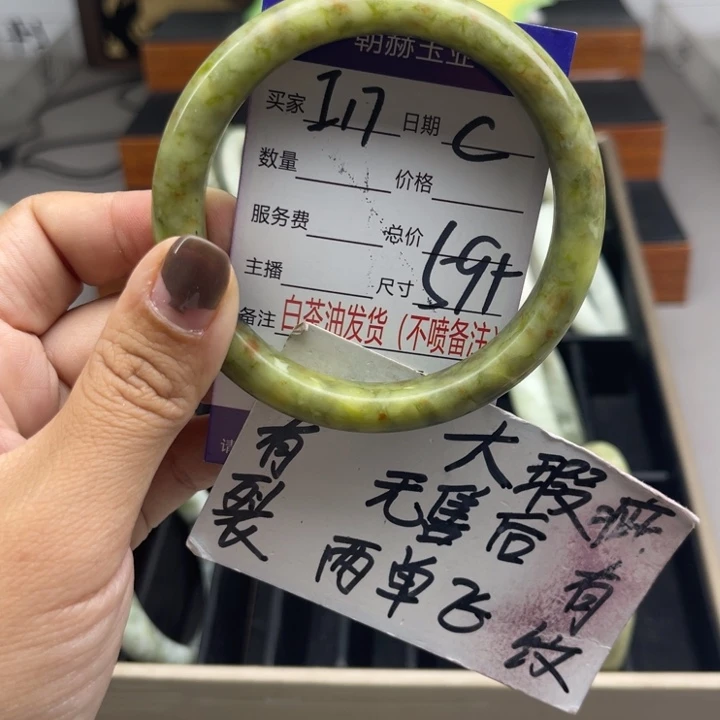 朝赫玉业
买家 117 日期 C
数量 价格
服务费 总价
主播 尺寸 59+
备注 白茶油发货（不喷备注）
请
大瑕疵 有纹
有裂 无售后
两单飞